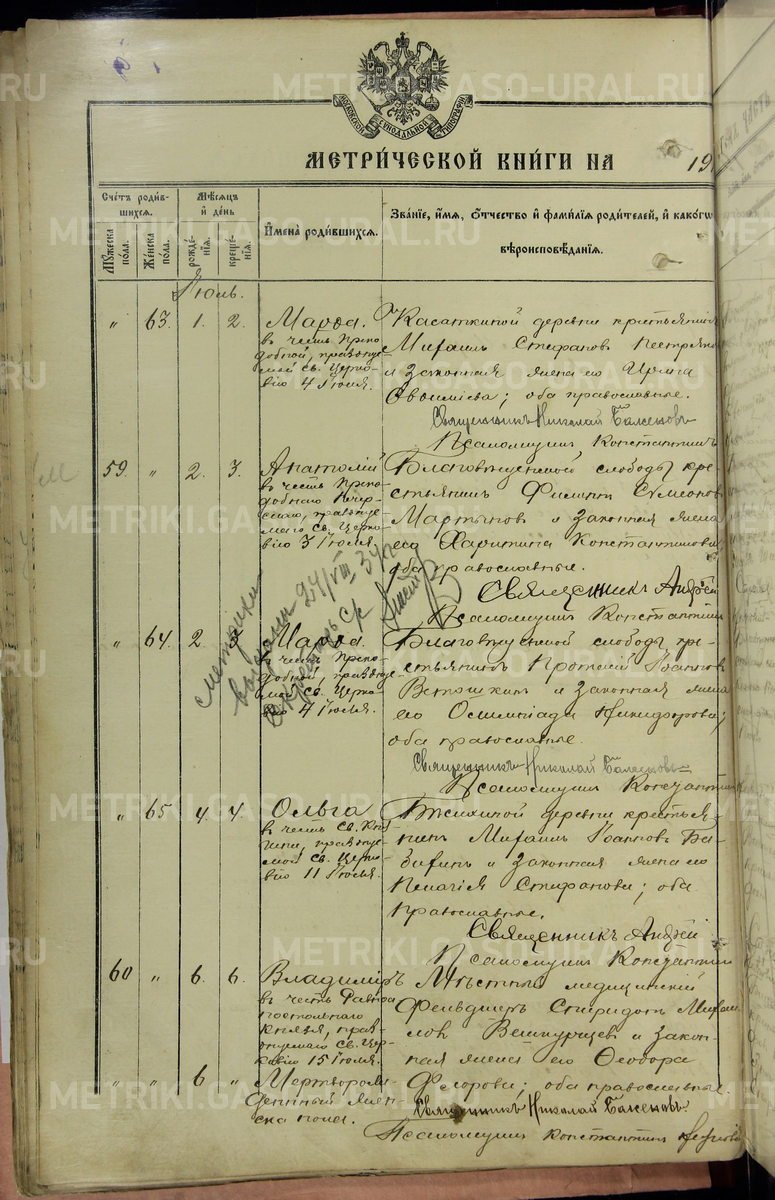 МОСКОВСКОЙ СѴНОДАЛЬНОЙ ТИПОГРАФІИ
МЕТРИ́ЧЕСКОЙ КНИ́ГИ НА 19
Счетъ роди́в-
шихся.
Мꙋ́жеска по́ла.
Же́нска по́ла.
Мѣ́сяцъ
и҆ де́нь
рожде́нія.
креще́нія.
И҆мена̀ роди́вшихся.
Зва́ніе, и҆́мя, ѻ҆́тчество и҆ фами́лія роди́телей, и҆ како́гѡ
вѣроисповѣ́данія.
Іюль.
" 63. 1. 2. Марѳа.
въ честь препо-
добной, празднуе-
мой св. Церко-
вію 4 Іюля.
Касаткиной деревни крестьянинъ
Михаилъ Стефановъ
и законная жена его Ирина
Евѳиміева; оба православные.
Священникъ Николай Баженовъ
Псаломщикъ Константинъ
59. " 2. 3. Анатолій
въ честь Препо-
добнаго Печер-
скаго, праздну-
емаго св. Церко-
вію 3 Іюля.
Благовѣщенской слободы кре-
стьянинъ Филиппъ Сѵмеоновъ
Мартыновъ и законная жена
его Харитина Константинова;
оба православные.
Священникъ Андрей
Псаломщикъ Константинъ
метрики
выданы 24/VIII 34 г
Секретарь С/с
" 64. 2. Марѳа.
въ честь препо-
добной, празднуе-
мой св. Церко-
вію 4 Іюля.
Благовѣщенской слободы кре-
стьянинъ Іоанновъ
и законная жена
его Олимпіада Никифорова;
оба православные.
Священникъ Николай Баженовъ
Псаломщикъ Константинъ
" 65 4. 4. Ольга
въ честь св. Кня-
гини, празднуе-
мой св. Церко-
вію 11 Іюля.
деревни крестья-
нинъ Михаилъ Іоанновъ
и законная жена его
Пелагія Стефанова; оба
православные.
Священникъ Андрей
Псаломщикъ Константинъ
60 " 6. 6. Владиміръ
въ честь Равноа-
постольнаго
Князя, празд-
нуемаго св. Цер-
ковію 15 Іюля.
Мѣстный медицинскій
фельдшеръ Спиридонъ Михаи-
ловъ и закон-
ная жена его Ѳеодора
Ѳедорова; оба православные
" " 6 " Мертворож-
денный жен-
ска пола.
Священникъ Николай Баженовъ
Псаломщикъ Константинъ
METRIKI.GASO-URAL.RU